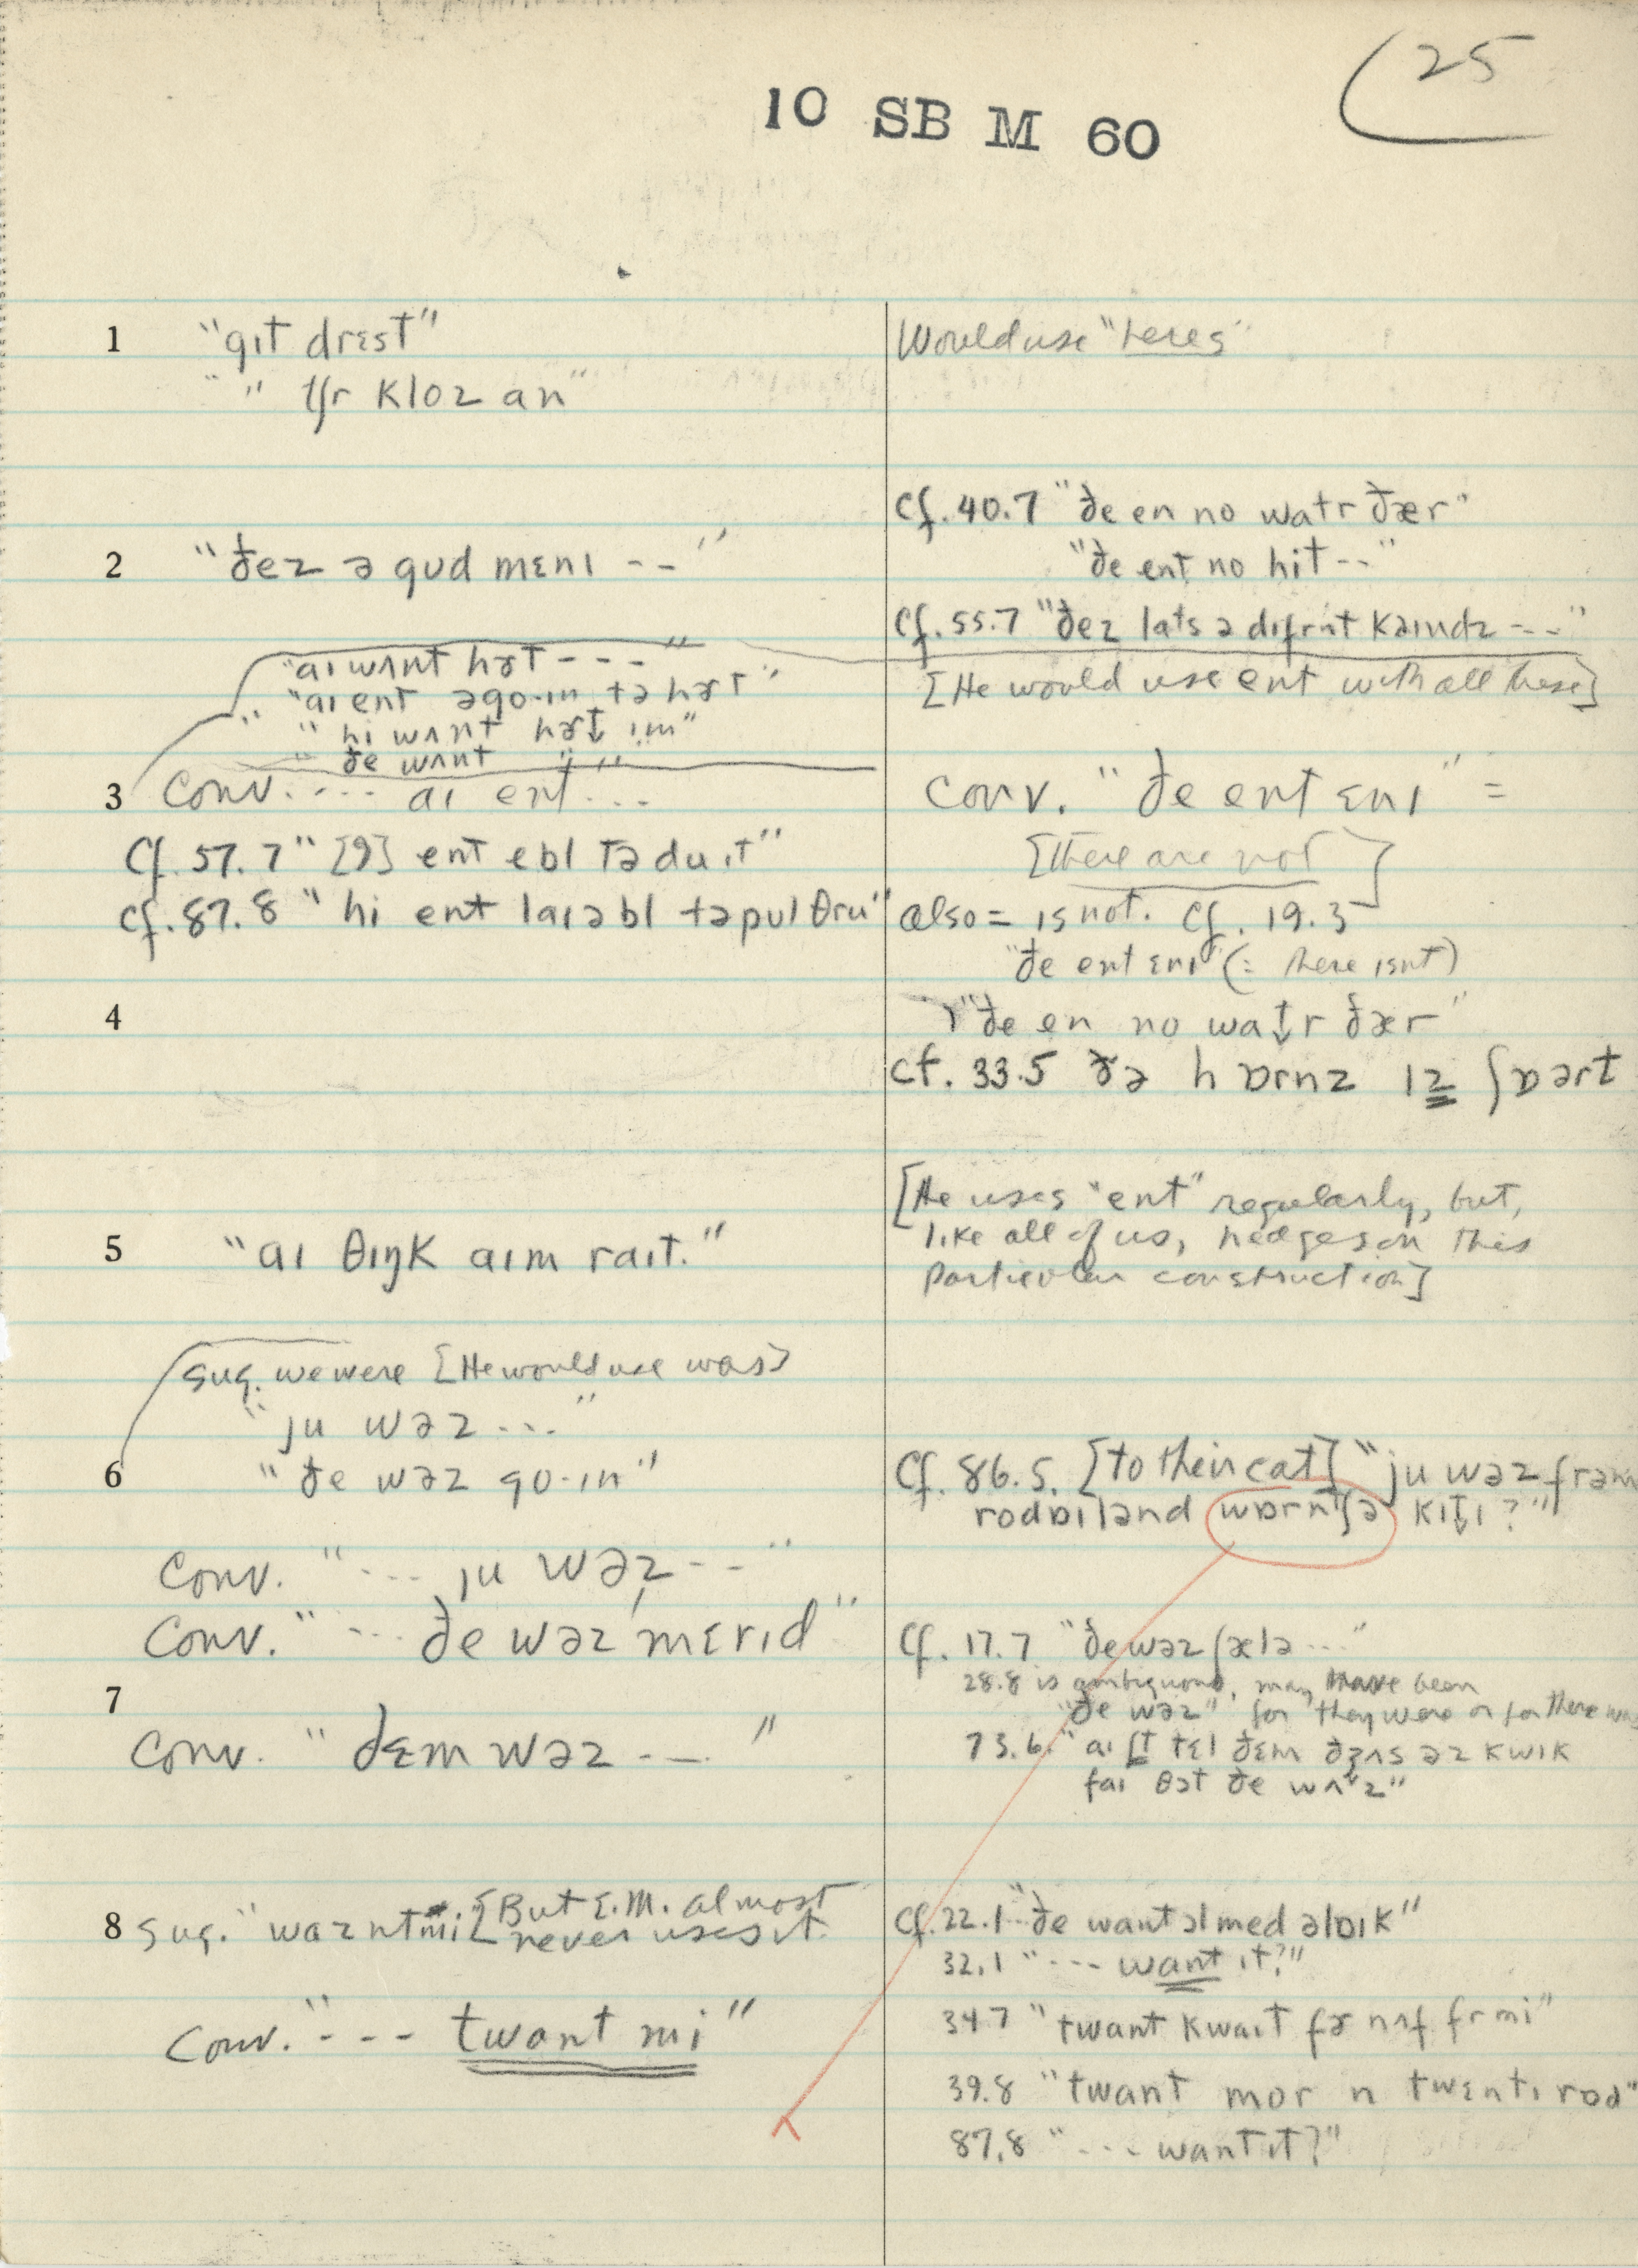 25
10 SB M 60
1 "gɪt drɛst"
" " jr kloz an"
Would use "heres"
2 "ðez ə gud mɛnɪ -- "
Cf. 40.7 "ðe en no watr ðær"
"ðe ent no hit--"
Cf. 55.7 "ðez lats ə dɪfrnt kaɪndz --"
[He would use ent with all these]
"aɪ wʌnt hɚt - - - "
"aɪ ent əgo·ɪn tə hɚt"
"hi wʌnt hɚt ɪm"
" ðe wʌnt " "
3 Conv. .... aɪ ent...
Cf. 57.7 "[9] ent ebl tə du ɪt"
cf. 87.8 "hi ent laɪəbl tə pul θru"
Conv. "ðe ent ɛnɪ" =
[there are not]
also = is not. Cf. 19.3
"ðe ent ɛnɪ" (= there isnt)
4
"ðe en no watr ðær"
cf. 33.5 ðə hɒrnz ɪz ʃɒərt
5 "aɪ θɪŋk aɪm raɪt."
[He uses "ent" regularly, but,
like all of us, hedges on this
particular construction]
sug. we were [He would use was]
"ju wəz ..."
6 "ðe wəz go·ɪn"
Cf. 86.5. [to their cat] "ju wəz frəm
rodɒɪlənd wɒrntʃə kɪtɪ?"
Conv. "... ju wəz --"
Conv. "... ðe wəz mɛrɪd"
7
Cf. 17.7 "ðe wəz ʃælə ..."
28.8 is ambiguous, may have been
"ðe wəz" for they were or for there was
Conv. "ðɛm wəz -- "
73.6. "aɪ tɛl ðɛm ðʒʌs əz kwɪk
faɪ θət ðe wʌz"
8 Sug. "waznt mi [But E.M. almost
never uses it.
Cf. 22.1 "ðe want əl med əlɒɪk"
32.1 "--- want ɪt?"
Conv. "--- twant mi"
34.7 "twant kwaɪt fɚ nʌf fr mi"
39.8 "twant mor n twɛntɪ rod"
87.8 "... want ɪt?"